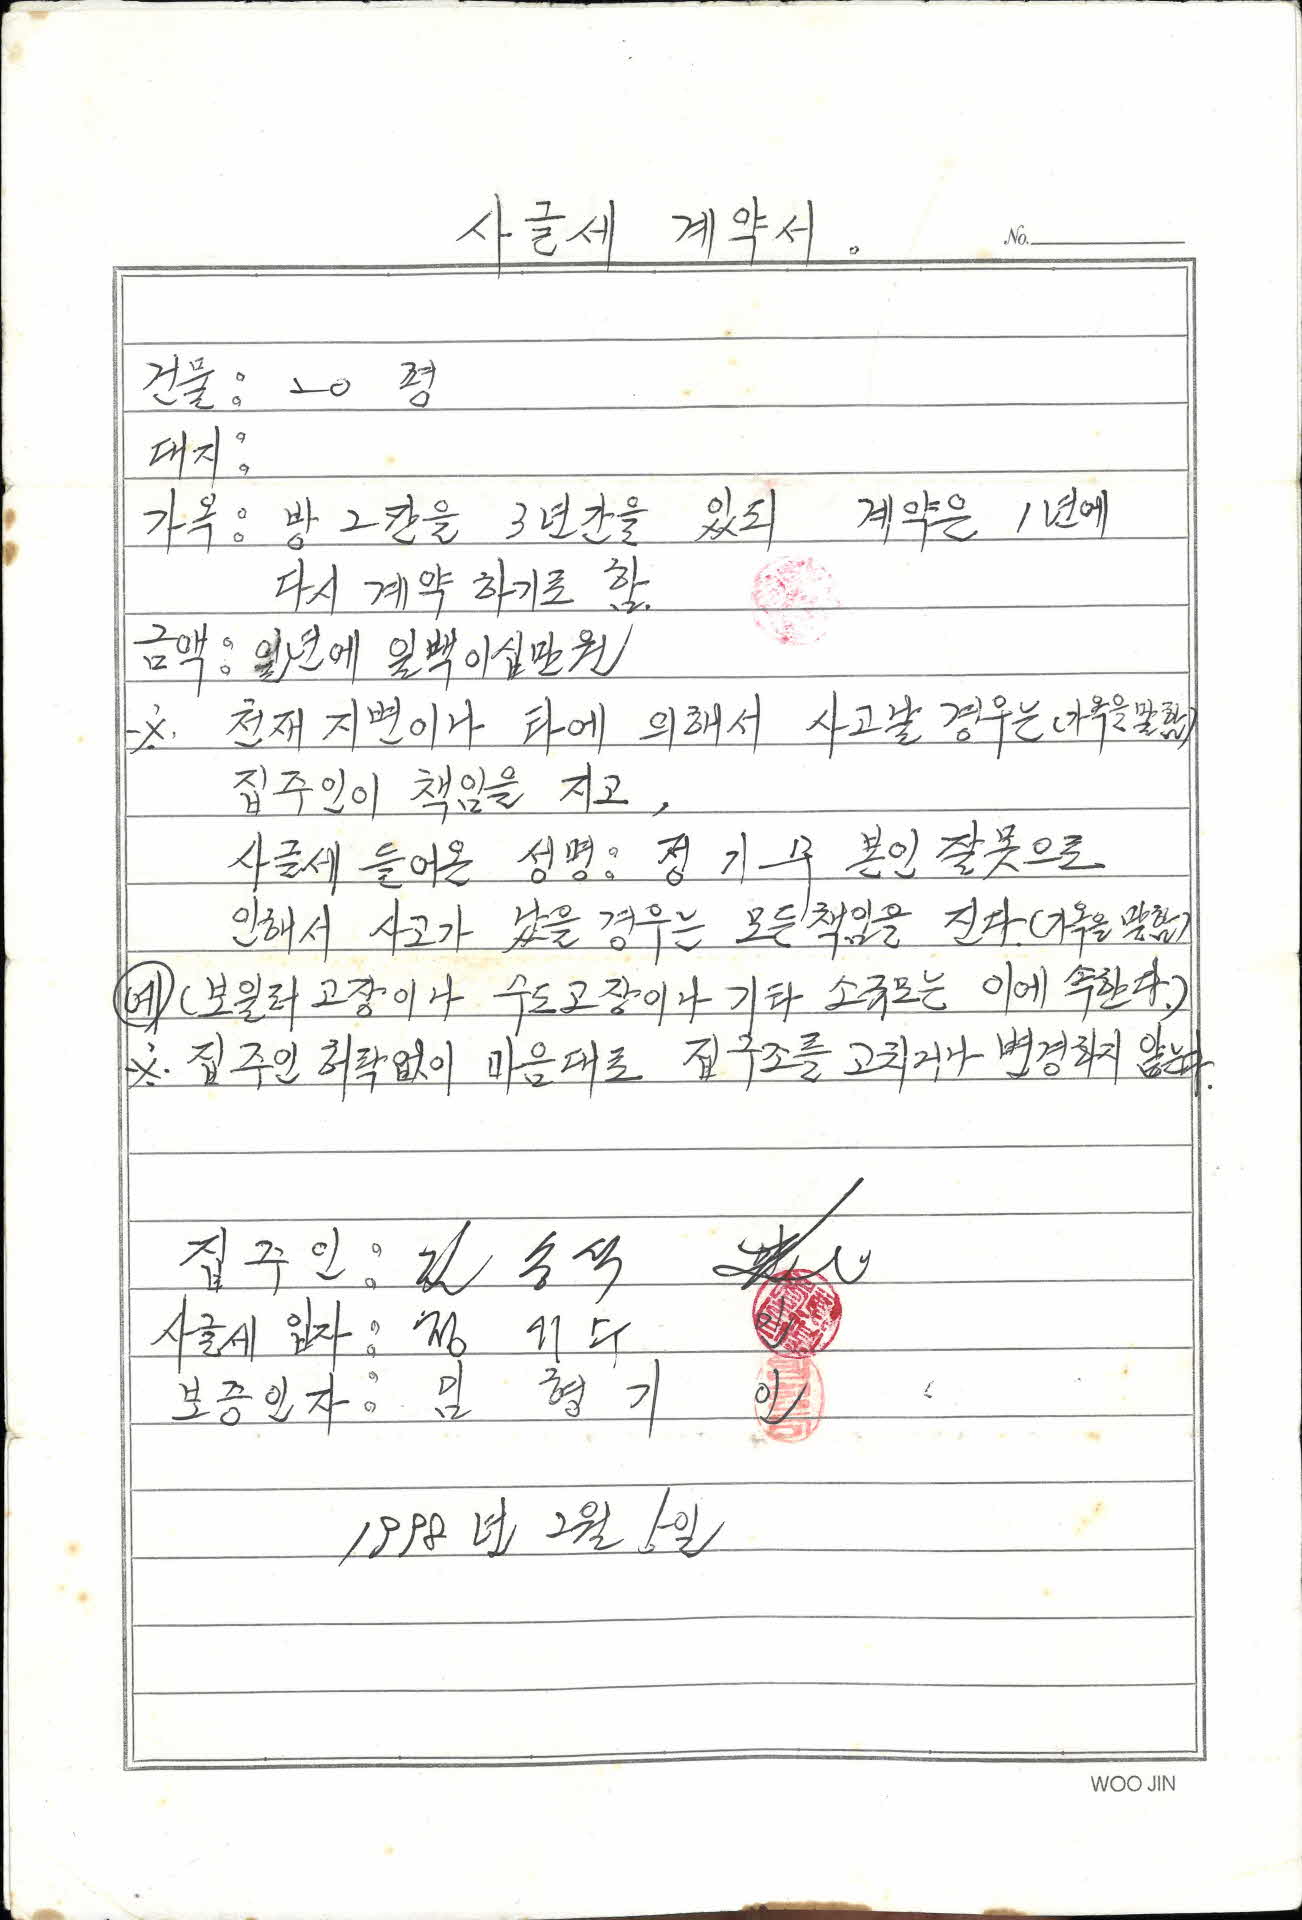 사글세 계약서.
No.
건물: 20 평
대지:
가옥: 방 2칸을 3년간을 있되 계약은 1년에
다시 계약 하기로 함.
금액: 일년에 일백이십만원
※. 천재 지변이나 타에 의해서 사고날 경우는 (가옥을 말함)
집주인이 책임을 지고,
사글세 들어온 성명: 정 기 우 본인 잘못으로
인해서 사고가 났을 경우는 모든 책임을 진다. (가옥을 말함)
예 (보일러 고장이나 수도고장이나 기타 소규모는 이에 속한다.)
※. 집주인 허락없이 마음대로 집 구조를 고치거나 변경하지 않는다.
집 주 인: 김 송 석
사글세 입자: 정 기 우 인
보증인자: 임 형 기 인
1998 년 2월 일
WOO JIN